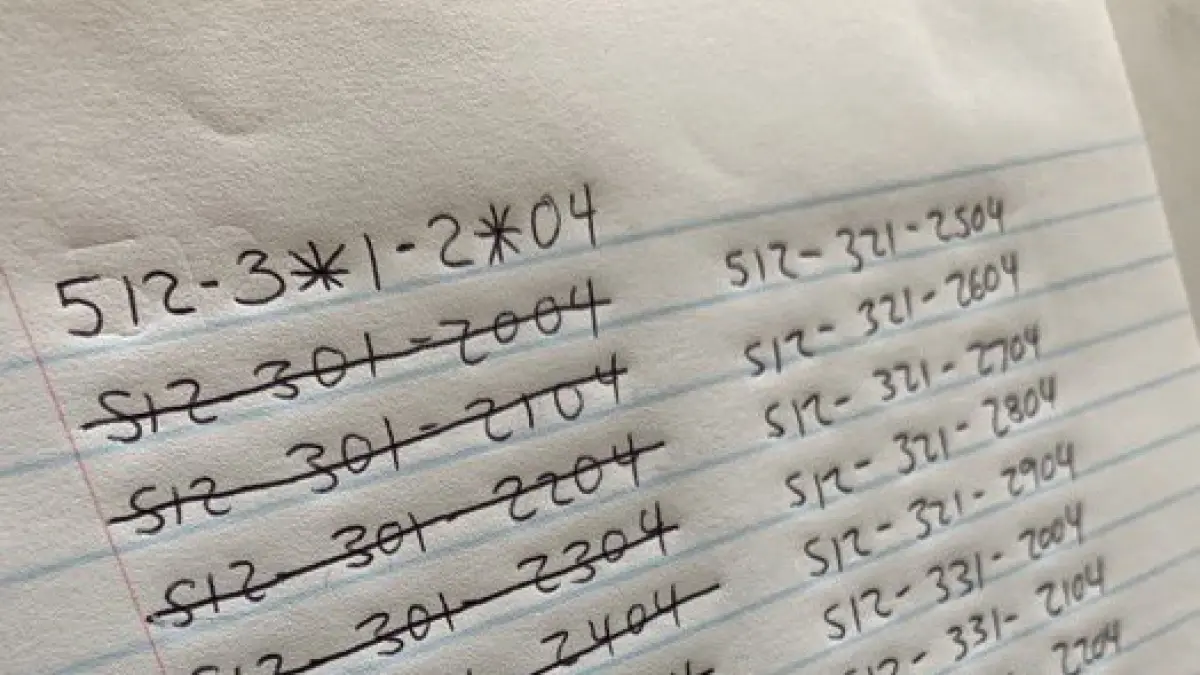 512-3*1-2*04
512-301-2004
512-301-2104
512-301-2204
512-301-2304
2404
512-321-2504
512-321-2604
512-321-2704
512-321-2804
512-321-2904
512-331-2004
512-331-2104
2204